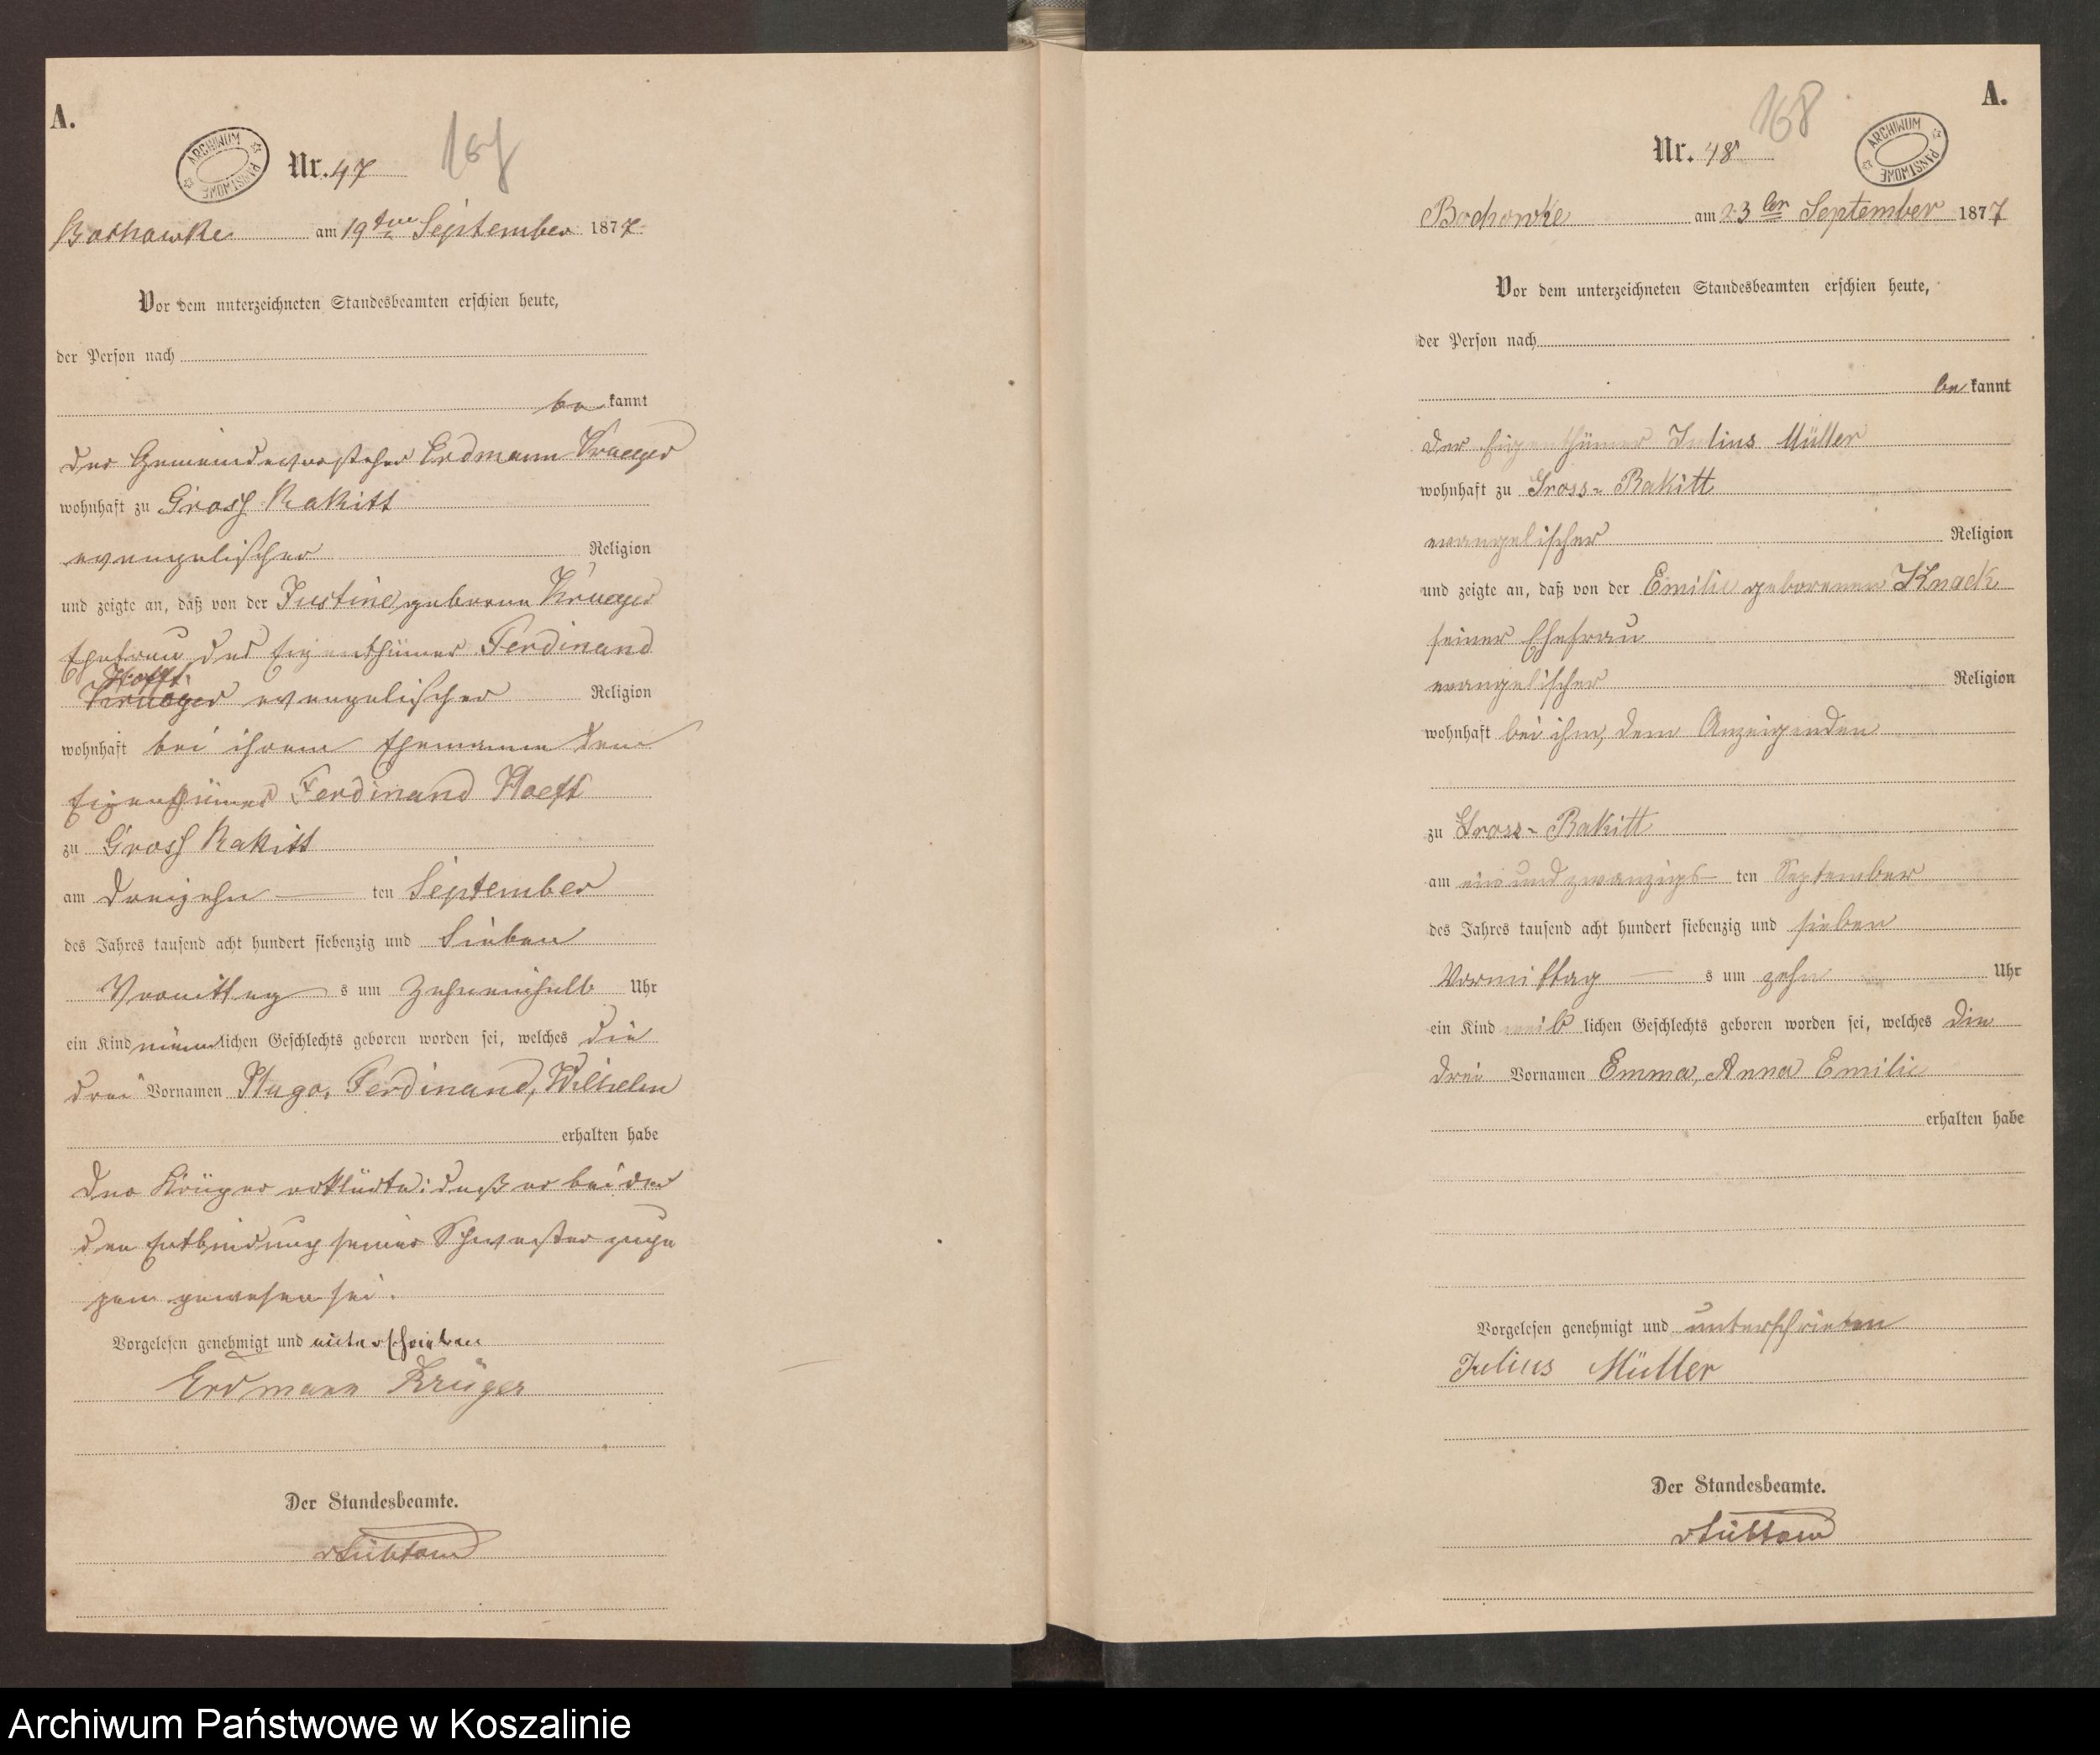 A.
ARCHIWUM PAŃSTWOWE
Nr. 47
Bochowke am 19ten September 1877
Vor dem unterzeichneten Standesbeamten erschien heute,
der Person nach
be kannt
der Gemeindevorsteher Erdmann Krueger
wohnhaft zu Gross Rakitt
evangelischer Religion
und zeigte an, daß von der Justine geborene Krueger
Ehefrau des Eigenthümer Ferdinand
Hoeft
Krueger evangelischer Religion
wohnhaft bei ihrem Ehemanne dem
Eigenthümer Ferdinand Hoeft
zu Gross Rakitt
am dreizehn ten September
des Jahres tausend acht hundert siebenzig und sieben
Vormittag s um Zehneinhalb Uhr
ein Kind männlichen Geschlechts geboren worden sei, welches die
drei Vornamen Hugo, Ferdinand, Wilhelm
erhalten habe
Der Krüger erklärte: daß er bei der
den Entbindung seiner Schwester zuge
gen gewesen sei.
Vorgelesen genehmigt und unterschrieben
Erdmann Krüger
Der Standesbeamte.
A.
168
ARCHIWUM PAŃSTWOWE
Nr. 48
Bochowke am 23ten September 1877
Vor dem unterzeichneten Standesbeamten erschien heute,
der Person nach
be kannt
der Eigenthümer Julius Müller
wohnhaft zu Gross-Rakitt
evangelischer Religion
und zeigte an, daß von der Emilie geborenen Knack
seiner Ehefrau
evangelischer Religion
wohnhaft bei ihm, dem Anzeigenden
zu Gross-Rakitt
am einundzwanzigs ten September
des Jahres tausend acht hundert siebenzig und sieben
Vormittag s um zehn Uhr
ein Kind weib lichen Geschlechts geboren worden sei, welches die
drei Vornamen Emma, Anna Emilie
erhalten habe
Vorgelesen genehmigt und unterschrieben
Julius Müller
Der Standesbeamte.
Archiwum Państwowe w Koszalinie